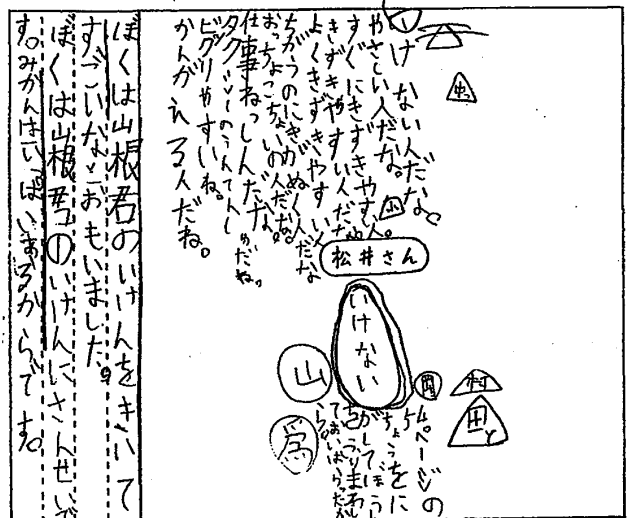 ①けない人だな。
やさしい人だな。
すぐにきずきやすい人。
きずきやすい人だな。
よくきずきやすい人
ちがうのにきがぬく人だな
おっちょこちょいの人だな。
仕事ねっしんだな。
タクシーのうんてんしゅだね。
ビックリやすいね。
かんがえる人だね。
虫
松井さん
いけない
山
村
田と
4ページの
ちょうちょうをに
がしてぼうし
ぼくは山根君のいけんをきいて
すごいなとおもいました。
ぼくは山根君①のいけんにさんせいで
す。みかんはいっぱいあるからです。